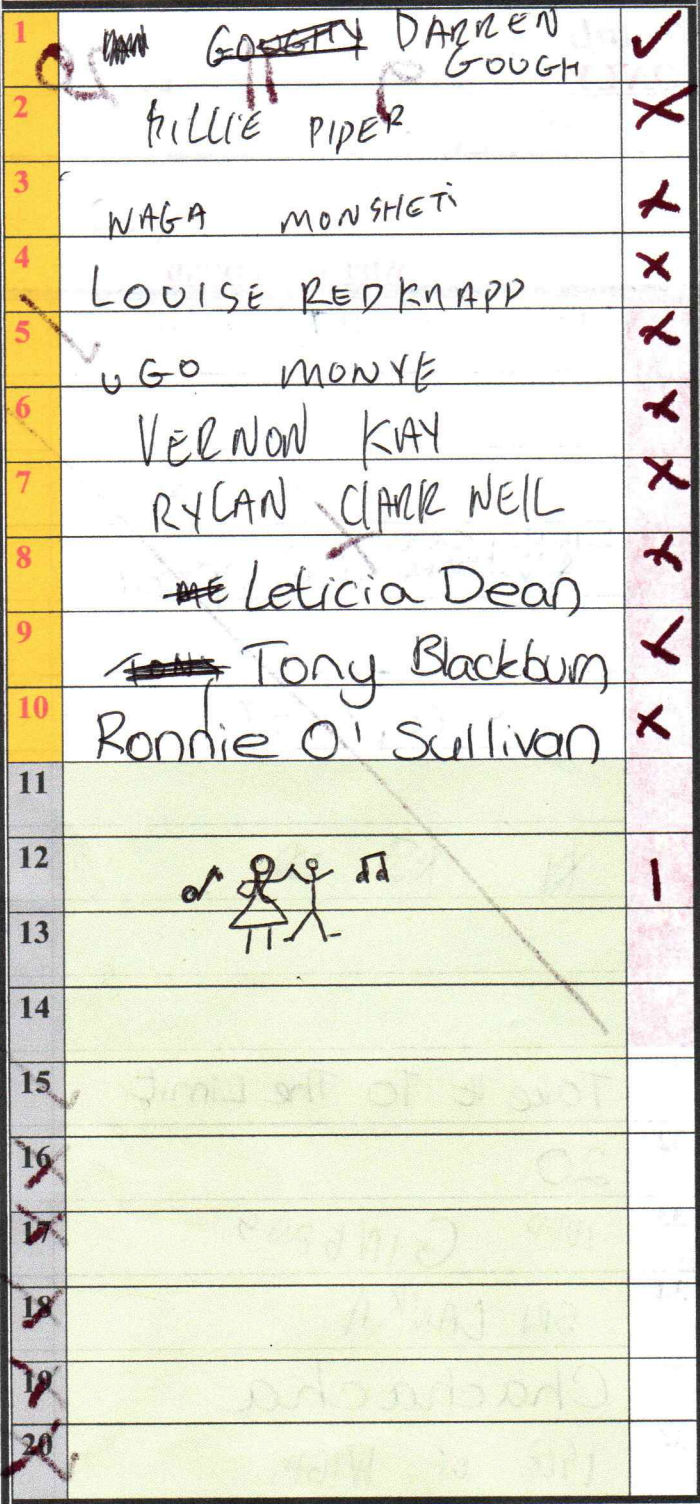 1 DARREN
GOUGH
2 BILLIE PIPER
3 NAGA MONSHETI
4 LOUISE REDKNAPP
5 UGO MONYE
6 VERNON KAY
7 RYLAN CLARR NEIL
8 Leticia Dean
9 Tony Blackburn
10 Ronnie O' Sullivan
11
12 1
13
14
15
16
17
18
19
20